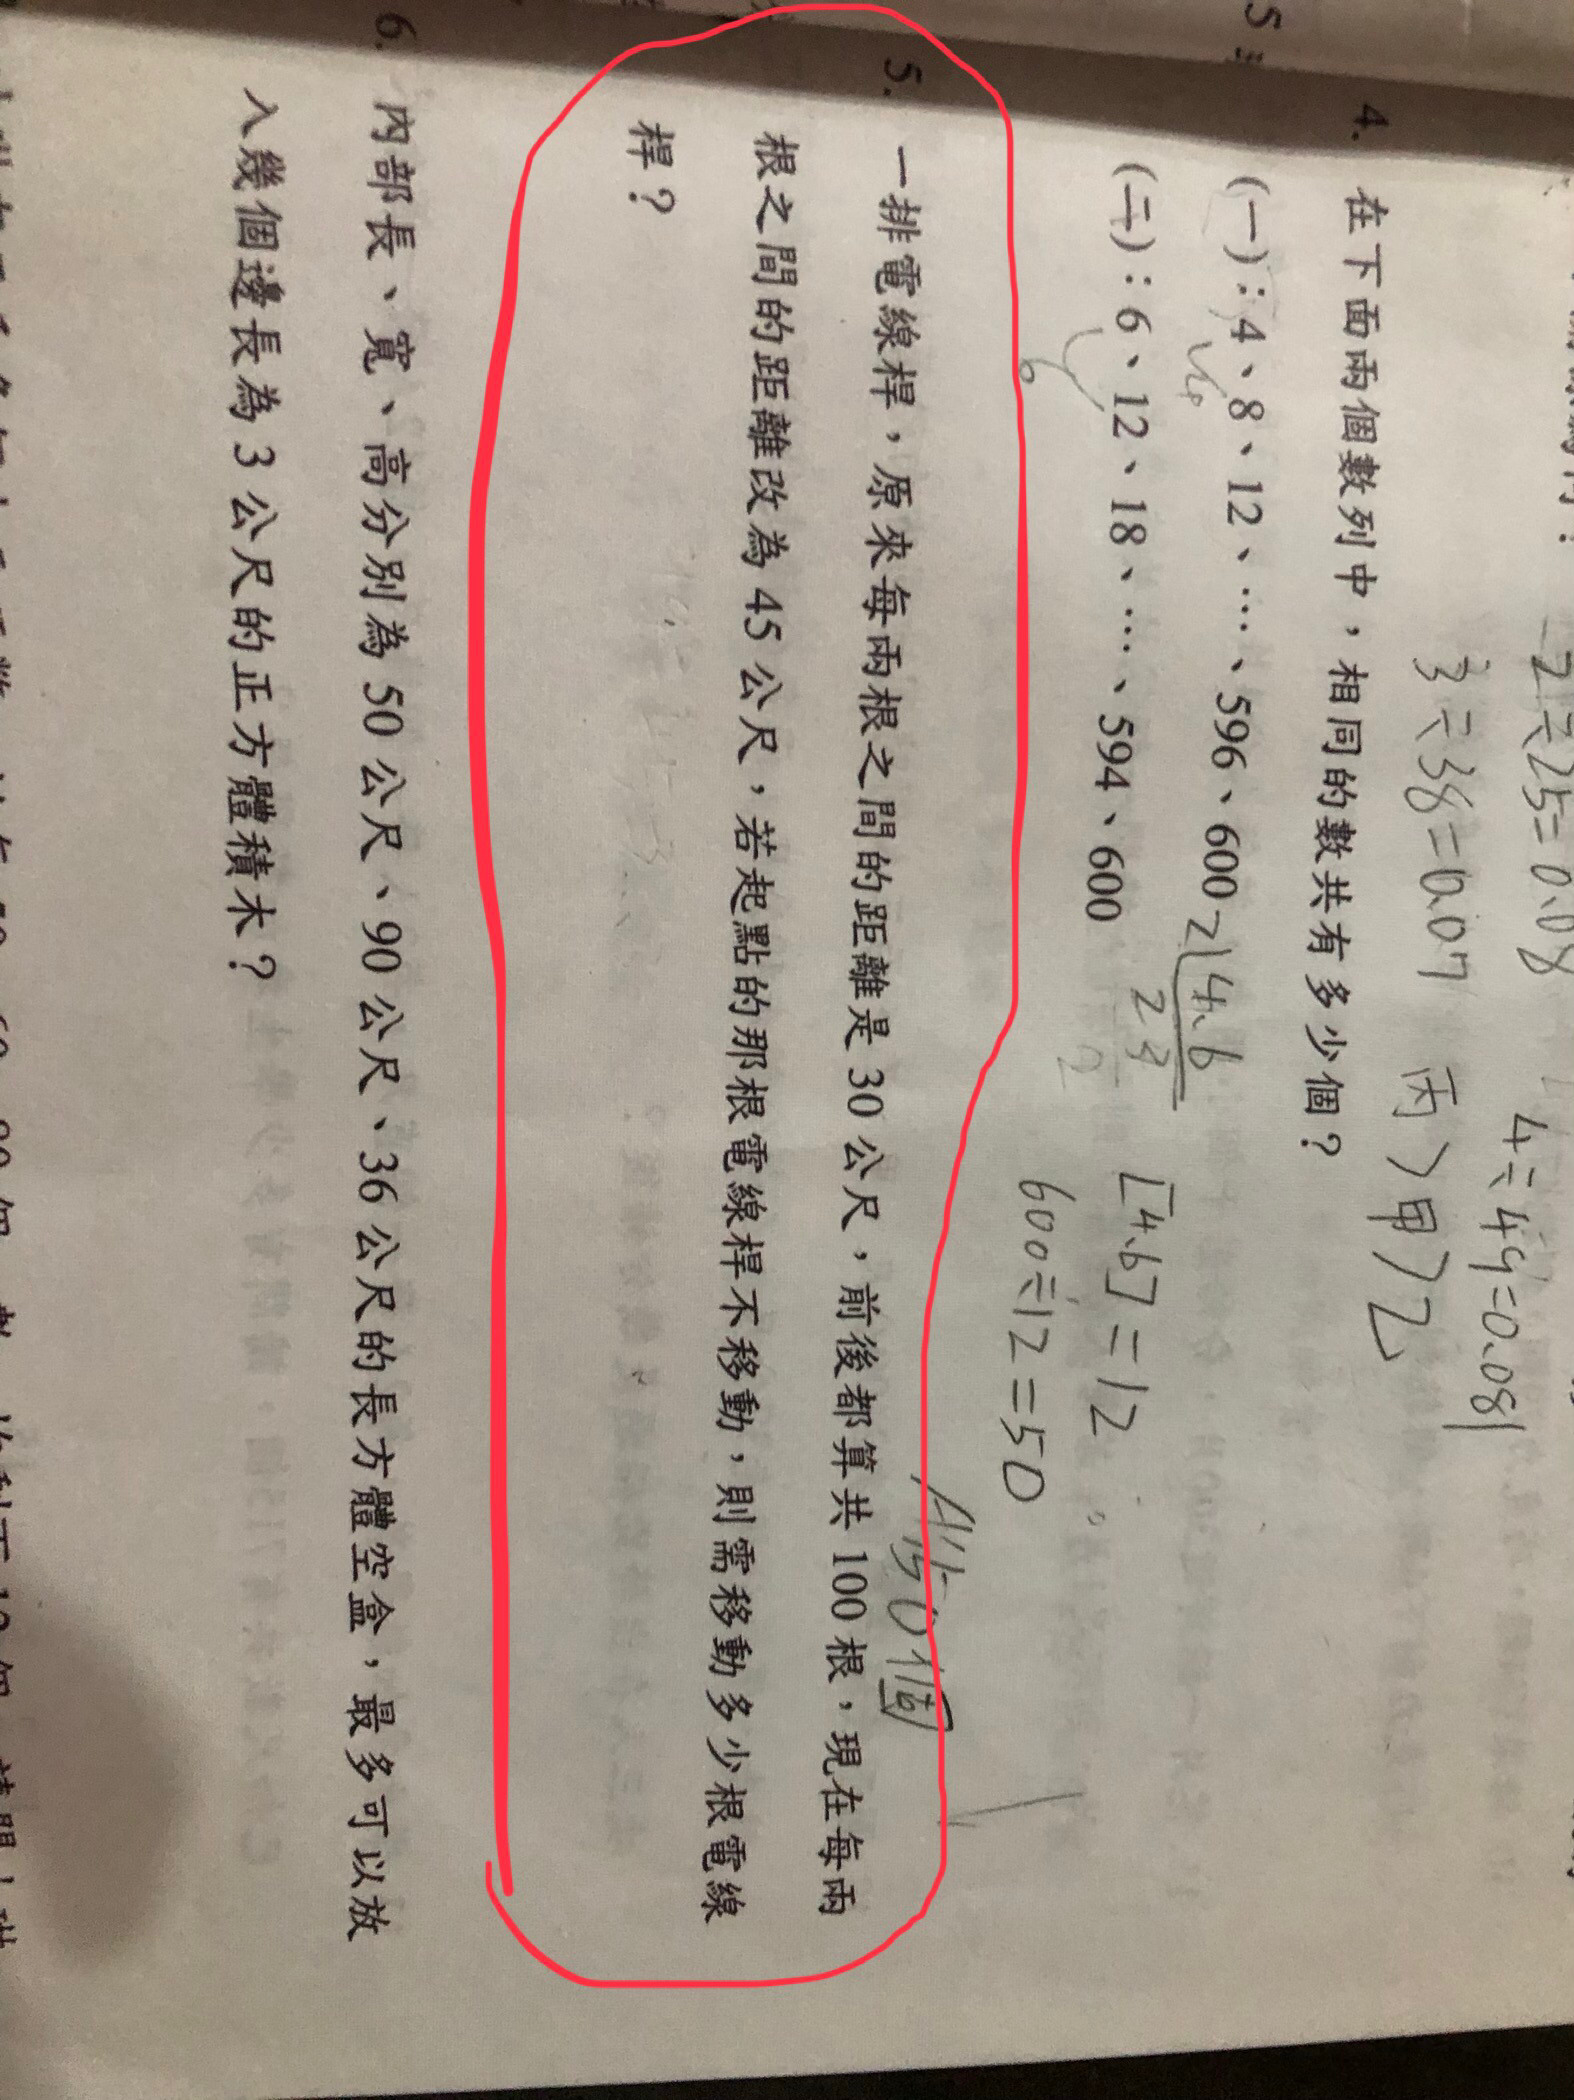 2÷25=0.08
4÷49=0.081
3÷38=0.07
丙>甲>乙
4.
在下面兩個數列中,相同的數共有多少個?
(一):4、8、12、…、596、600
4
2
4.6
2 3
[4.6]=12
(二):6、12、18、…、594、600
6
600÷12=50
A:50個
5.
一排電線桿,原來每兩根之間的距離是30公尺,前後都算共100根,現在每兩
根之間的距離改為45公尺,若起點的那根電線桿不移動,則需移動多少根電線
桿?
6.
內部長、寬、高分別為50公尺、90公尺、36公尺的長方體空盒,最多可以放
入幾個邊長為3公尺的正方體積木?